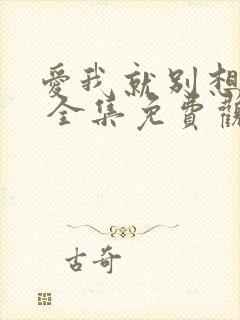 愛我就別想
全集免費觀
古奇